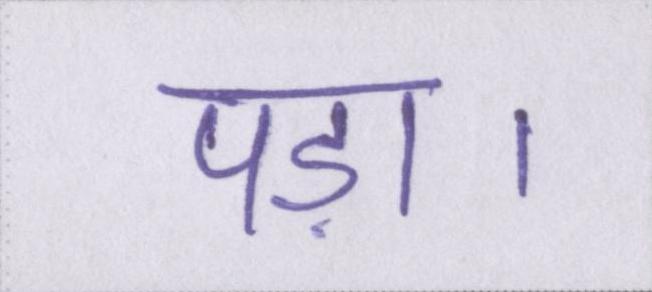 पड़ा ।